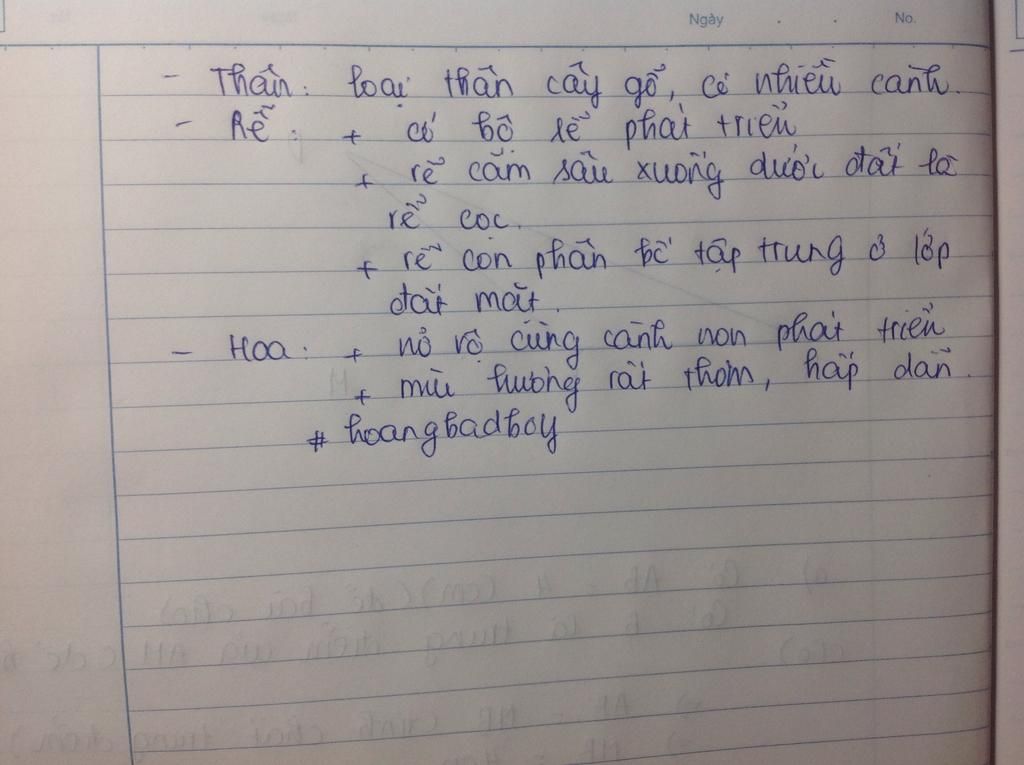 Ngày . . No.
- Thân: loại thân cây gỗ, có nhiều cành.
- Rễ: + có bộ rễ phát triển
+ rễ cắm sâu xuống dưới đất là
rễ cọc.
+ rễ con phân bố tập trung ở lớp
đất mặt.
- Hoa: + nở rộ cùng cành non phát triển
+ mùi hương rất thơm, hấp dẫn.
# hoangbadboy